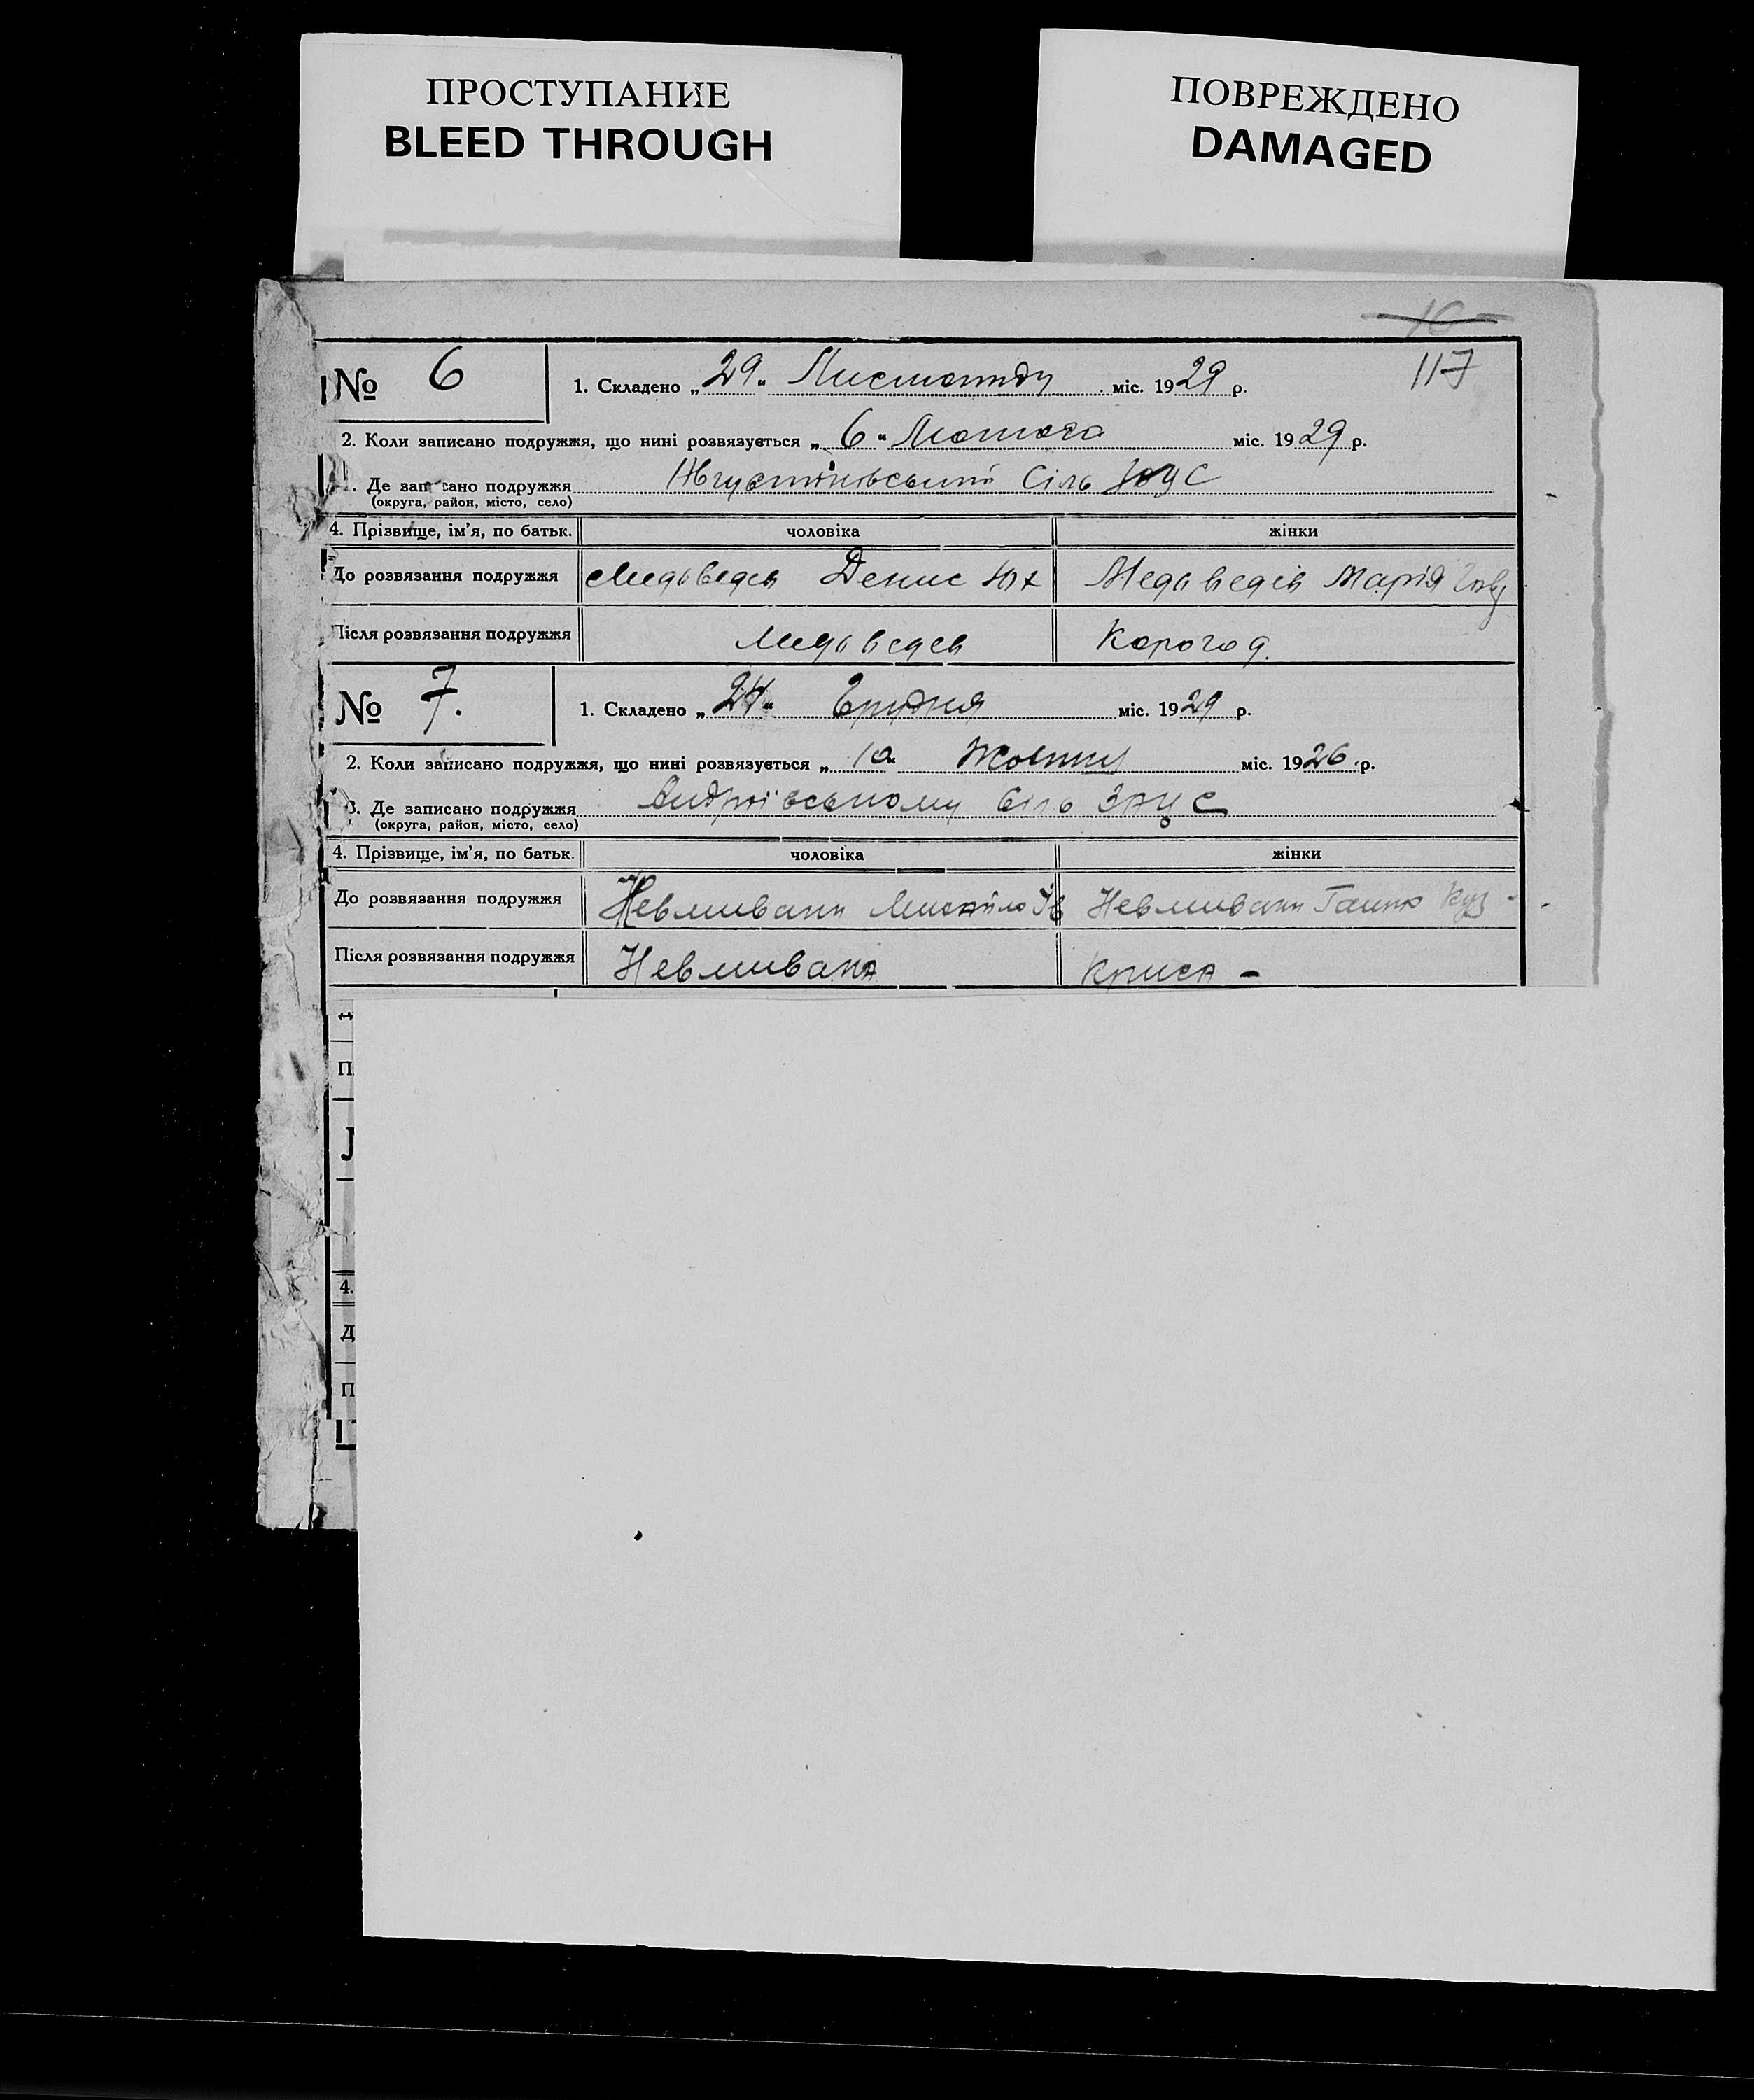 ПРОСТУПАНИЕ
BLEED THROUGH
ПОВРЕЖДЕНО
DAMAGED
10
117
№ 6
1. Складено „29“ Листопаду міс. 1929 р.
2. Коли записано подружжя, що нині розвязується „6“ Лютого міс. 1929 р.
Де записано подружжя Сіль
(округа, район, місто, село)
4. Прізвище, ім'я, по батьк. чоловіка жінки
До розвязання подружжя Медьведев Денис Медьведів Марія
Після розвязання подружжя Медьведев Корогод.
№ 7.
1. Складено „24“ Грудня міс. 1929 р.
2. Коли записано подружжя, що нині розвязується „10“ міс. 1926 р.
3. Де записано подружжя Андріївському Сіль ЗАЦС
(округа, район, місто, село)
4. Прізвище, ім'я, по батьк. чоловіка жінки
До розвязання подружжя Невмивани Михайло Ів Невмивани Ганна Куз
Після розвязання подружжя Невмивана Криса -
П
4.
Д
П